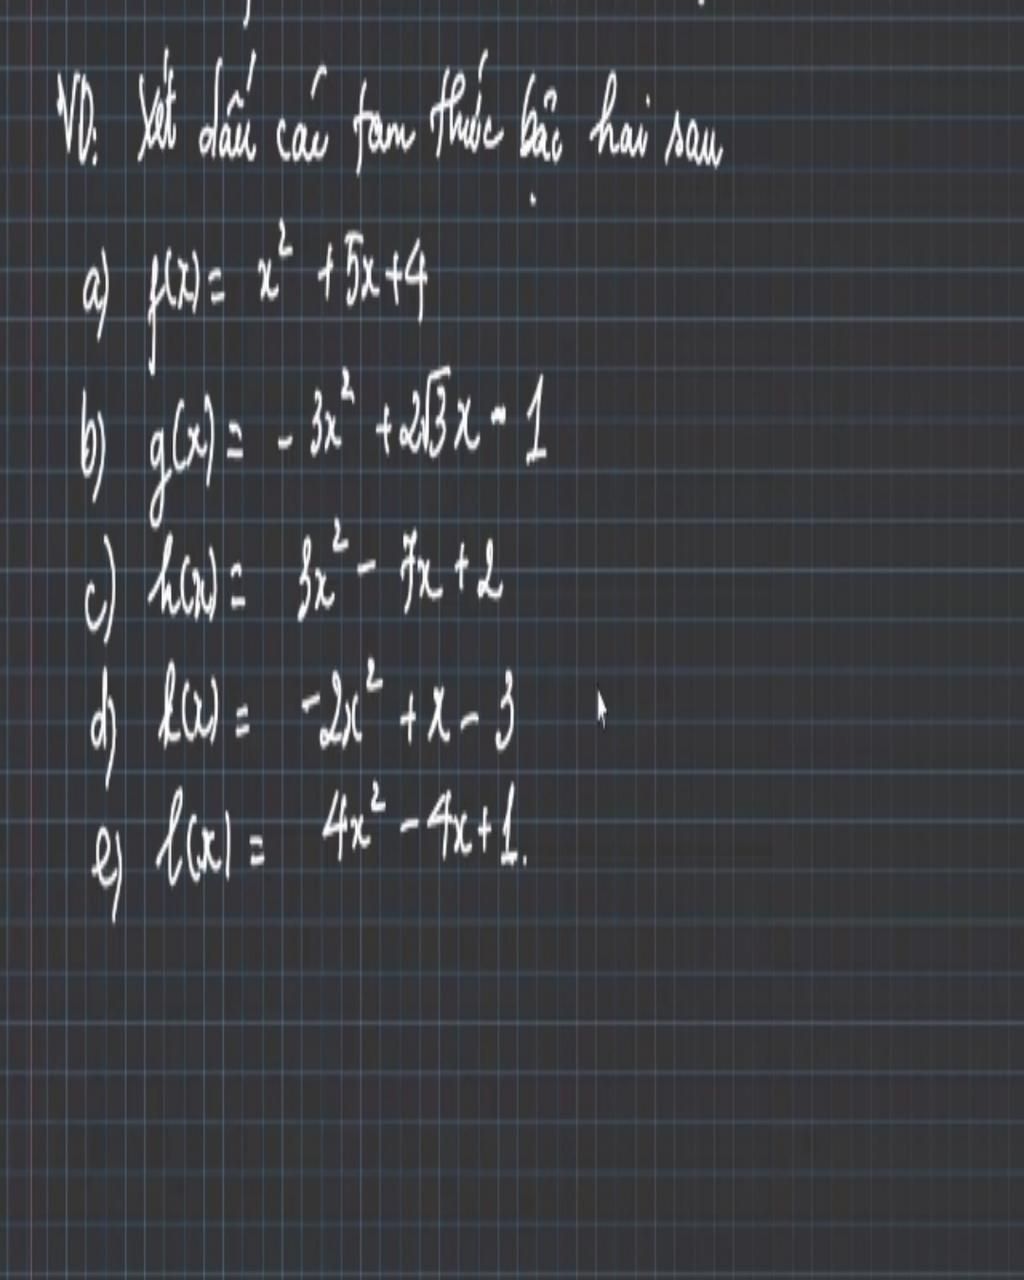 VD: Xét dấu các tam thức bậc hai sau
a) f(x) = x² + 5x + 4
b) g(x) = - 3x² + 2√3x - 1
c) h(x) = 3x² - 7x + 2
d) k(x) = -2x² + x - 3
e) l(x) = 4x² - 4x + 1.